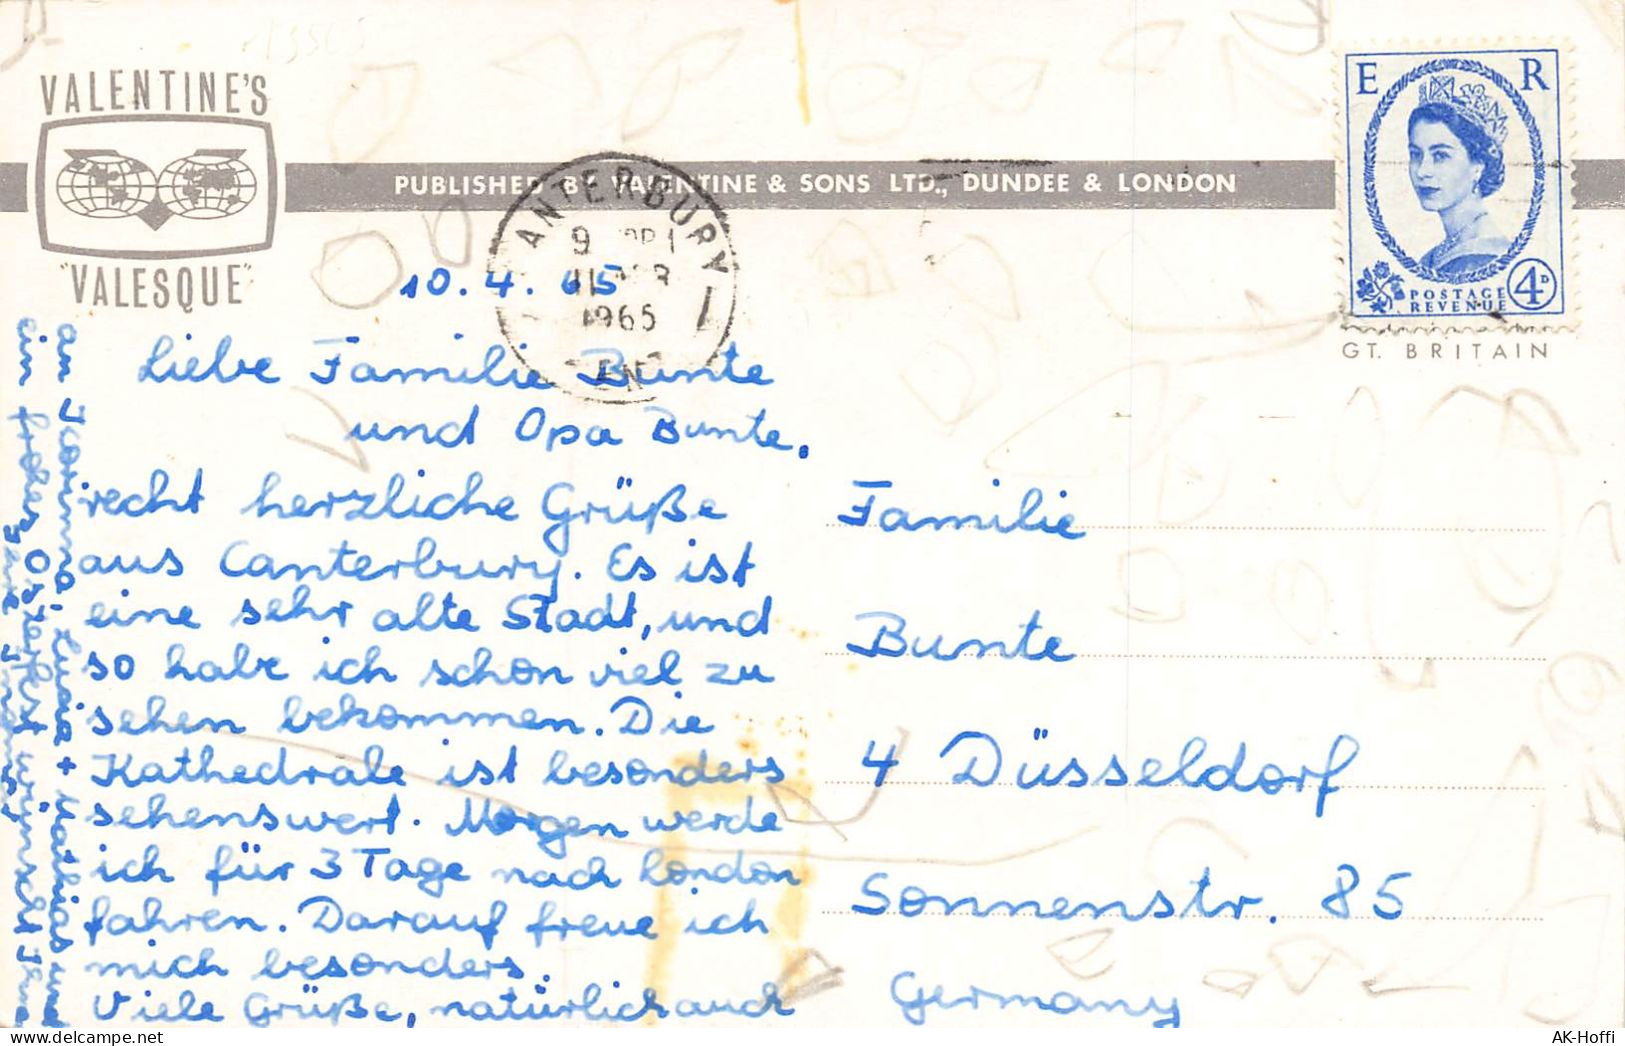 VALENTINE'S
"VALESQUE"
PUBLISHED BY VALENTINE & SONS LTD., DUNDEE & LONDON
E R
POSTAGE
REVENUE
4D
GT. BRITAIN
CANTERBURY
1965
10.4.65
Liebe Familie Bunte
und Opa Bunte,
recht herzliche Grüße
aus Canterbury. Es ist
eine sehr alte Stadt, und
so habe ich schon viel zu
sehen bekommen. Die
Kathedrale ist besonders
sehenswert. Morgen werde
ich für 3 Tage nach London
fahren. Darauf freue ich
mich besonders.
Viele Grüße, natürlich auch
an Korinna, Luzia + Mathias und
ein frohes Osterfest wünscht Ihnen
Familie
Bunte
4 Düsseldorf
Sonnenstr. 85
Germany
AK-Hoffi